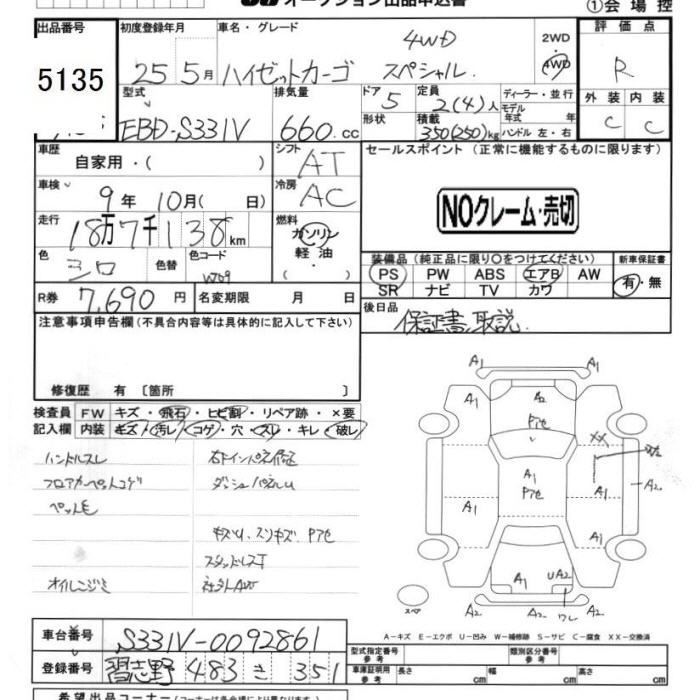 オークション出品申込書
①会場控
出品番号
5135
初度登録年月
25 5月
車名・グレード
ハイゼットカーゴ スペシャル 4WD
2WD
・
4WD
評価点
R
外装 内装
C C
型式
EBD-S331V
排気量
660.cc
ドア
5
形状
定員
2(4)人
積載
350(250)kg
ディーラー・並行
モデル
年式 年
ハンドル 左・右
車歴
自家用・( )
シフト
AT
車検
9年 10月( 日)
冷房
AC
走行
18万7千138km
燃料
ガソリン
軽油
( ・ )
色
シロ
色替
色コード
W09
R券
7,690円
名変期限 月 日
セールスポイント (正常に機能するものに限ります)
NOクレーム・売切
装備品 (純正品に限り○をつけてください)
PS PW ABS エアB AW
SR ナビ TV カワ
新車保証書
有・無
後日品
保証書、取説
注意事項申告欄 (不具合内容等は具体的に記入して下さい)
修復歴 有 〔箇所 〕
検査員
記入欄
FW キズ・飛石・ヒビ割・リペア跡・×要
内装 キズ・汚レ・コゲ・穴・スレ・キレ・破レ
ハンドルスレ
フロアカーペットコゲ
ペット毛
ダッシュパネルU
キズU、スリキズ、Pアセ
スタッドレスT
オイルニジミ
社外AW
A1
A1
A1
A2
Pアセ
A1
XX
A1
A2
A1
Pアセ
A1
A1
A1
UA2
A2
ワレ
スペア
A-キズ E-エクボ U-凹み W-補修跡 S-サビ C-腐食 XX-交換済
車台番号
S331V-0092861
登録番号
習志野 483 き 351
型式指定番号
参考
類別区分番号
参考
車庫証明用
参考
長さ 幅 高さ
cm cm cm
希望出品コーナー